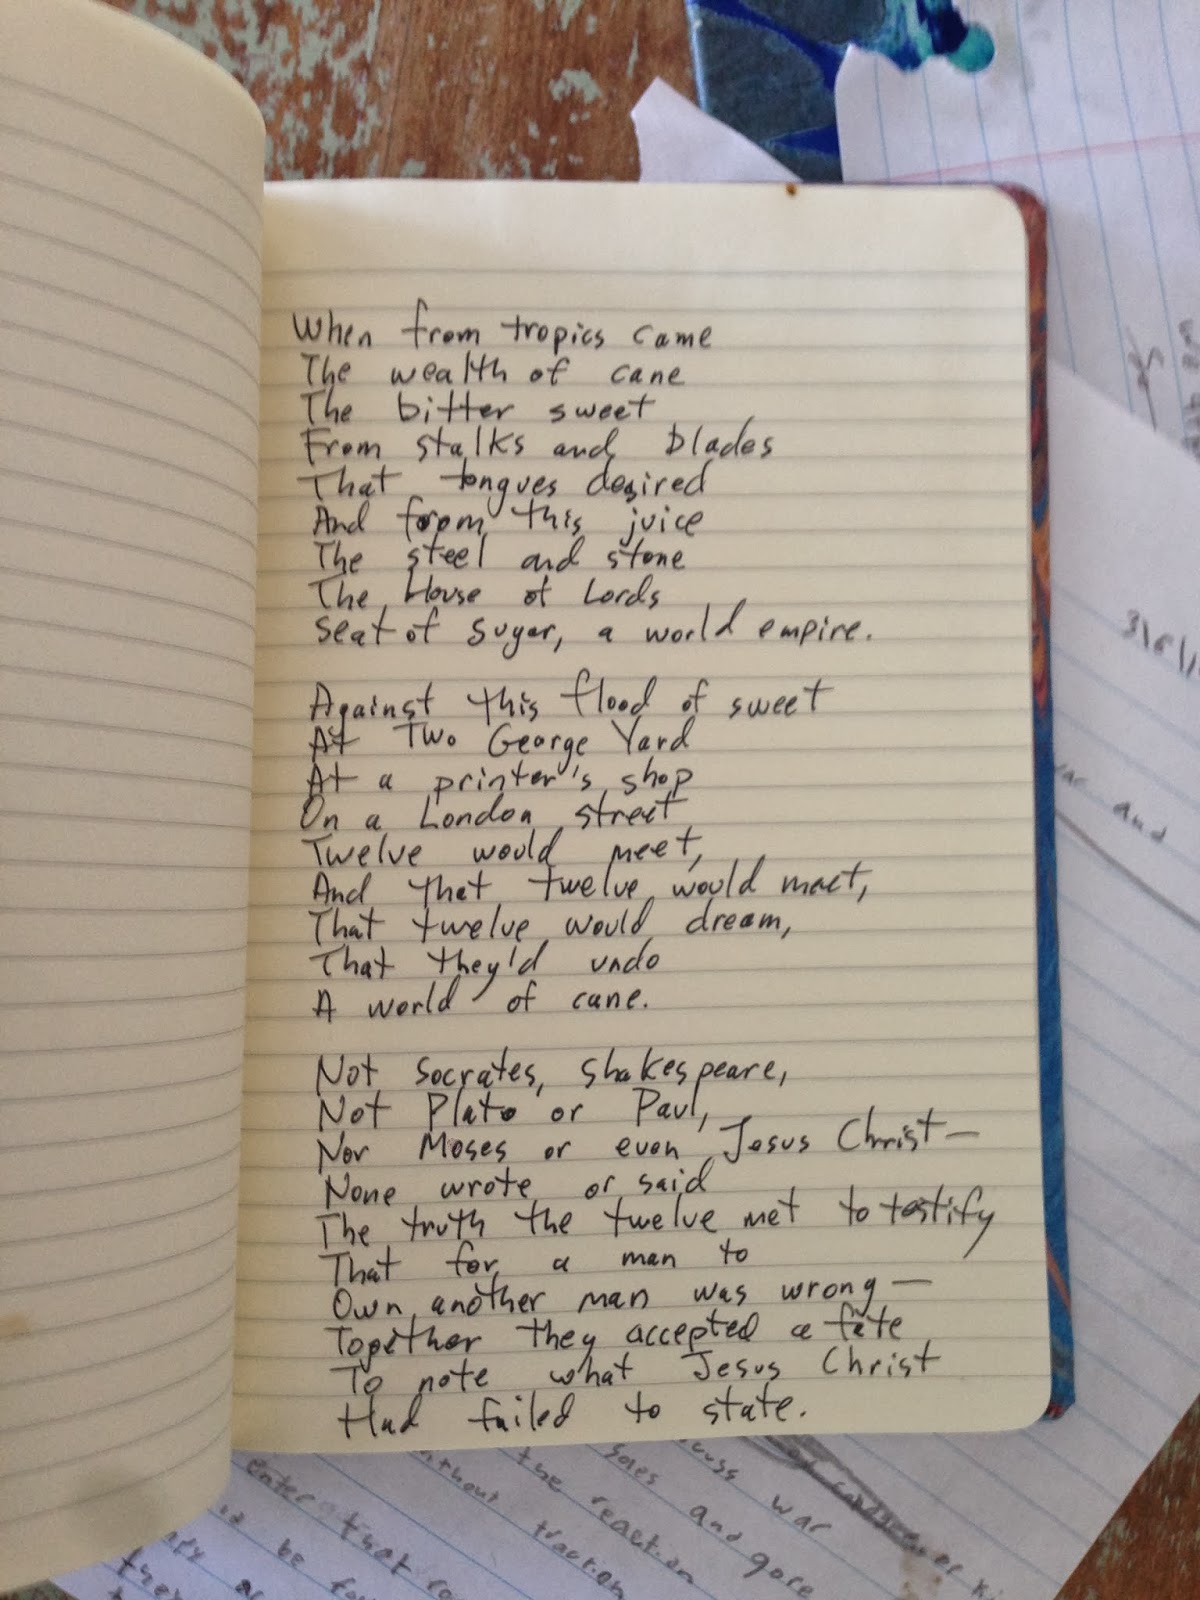 When from tropics came
The wealth of cane
The bitter sweet
From stalks and blades
That tongues desired
And from this juice
The steel and stone
The House of Lords
Seat of Sugar, a world empire.
Against this flood of sweet
At Two George Yard
At a printer's shop
On a London street
Twelve would meet,
And that twelve would meet,
That twelve would dream,
That they'd undo
A world of cane.
Not Socrates, Shakespeare,
Not Plato or Paul,
Nor Moses or even Jesus Christ—
None wrote or said
The truth the twelve met to testify
That for a man to
Own another man was wrong—
Together they accepted a fate
To note what Jesus Christ
Had failed to state.
3/6/1
war and
enter that
without
the reaction
traction
soles and gore
war
be